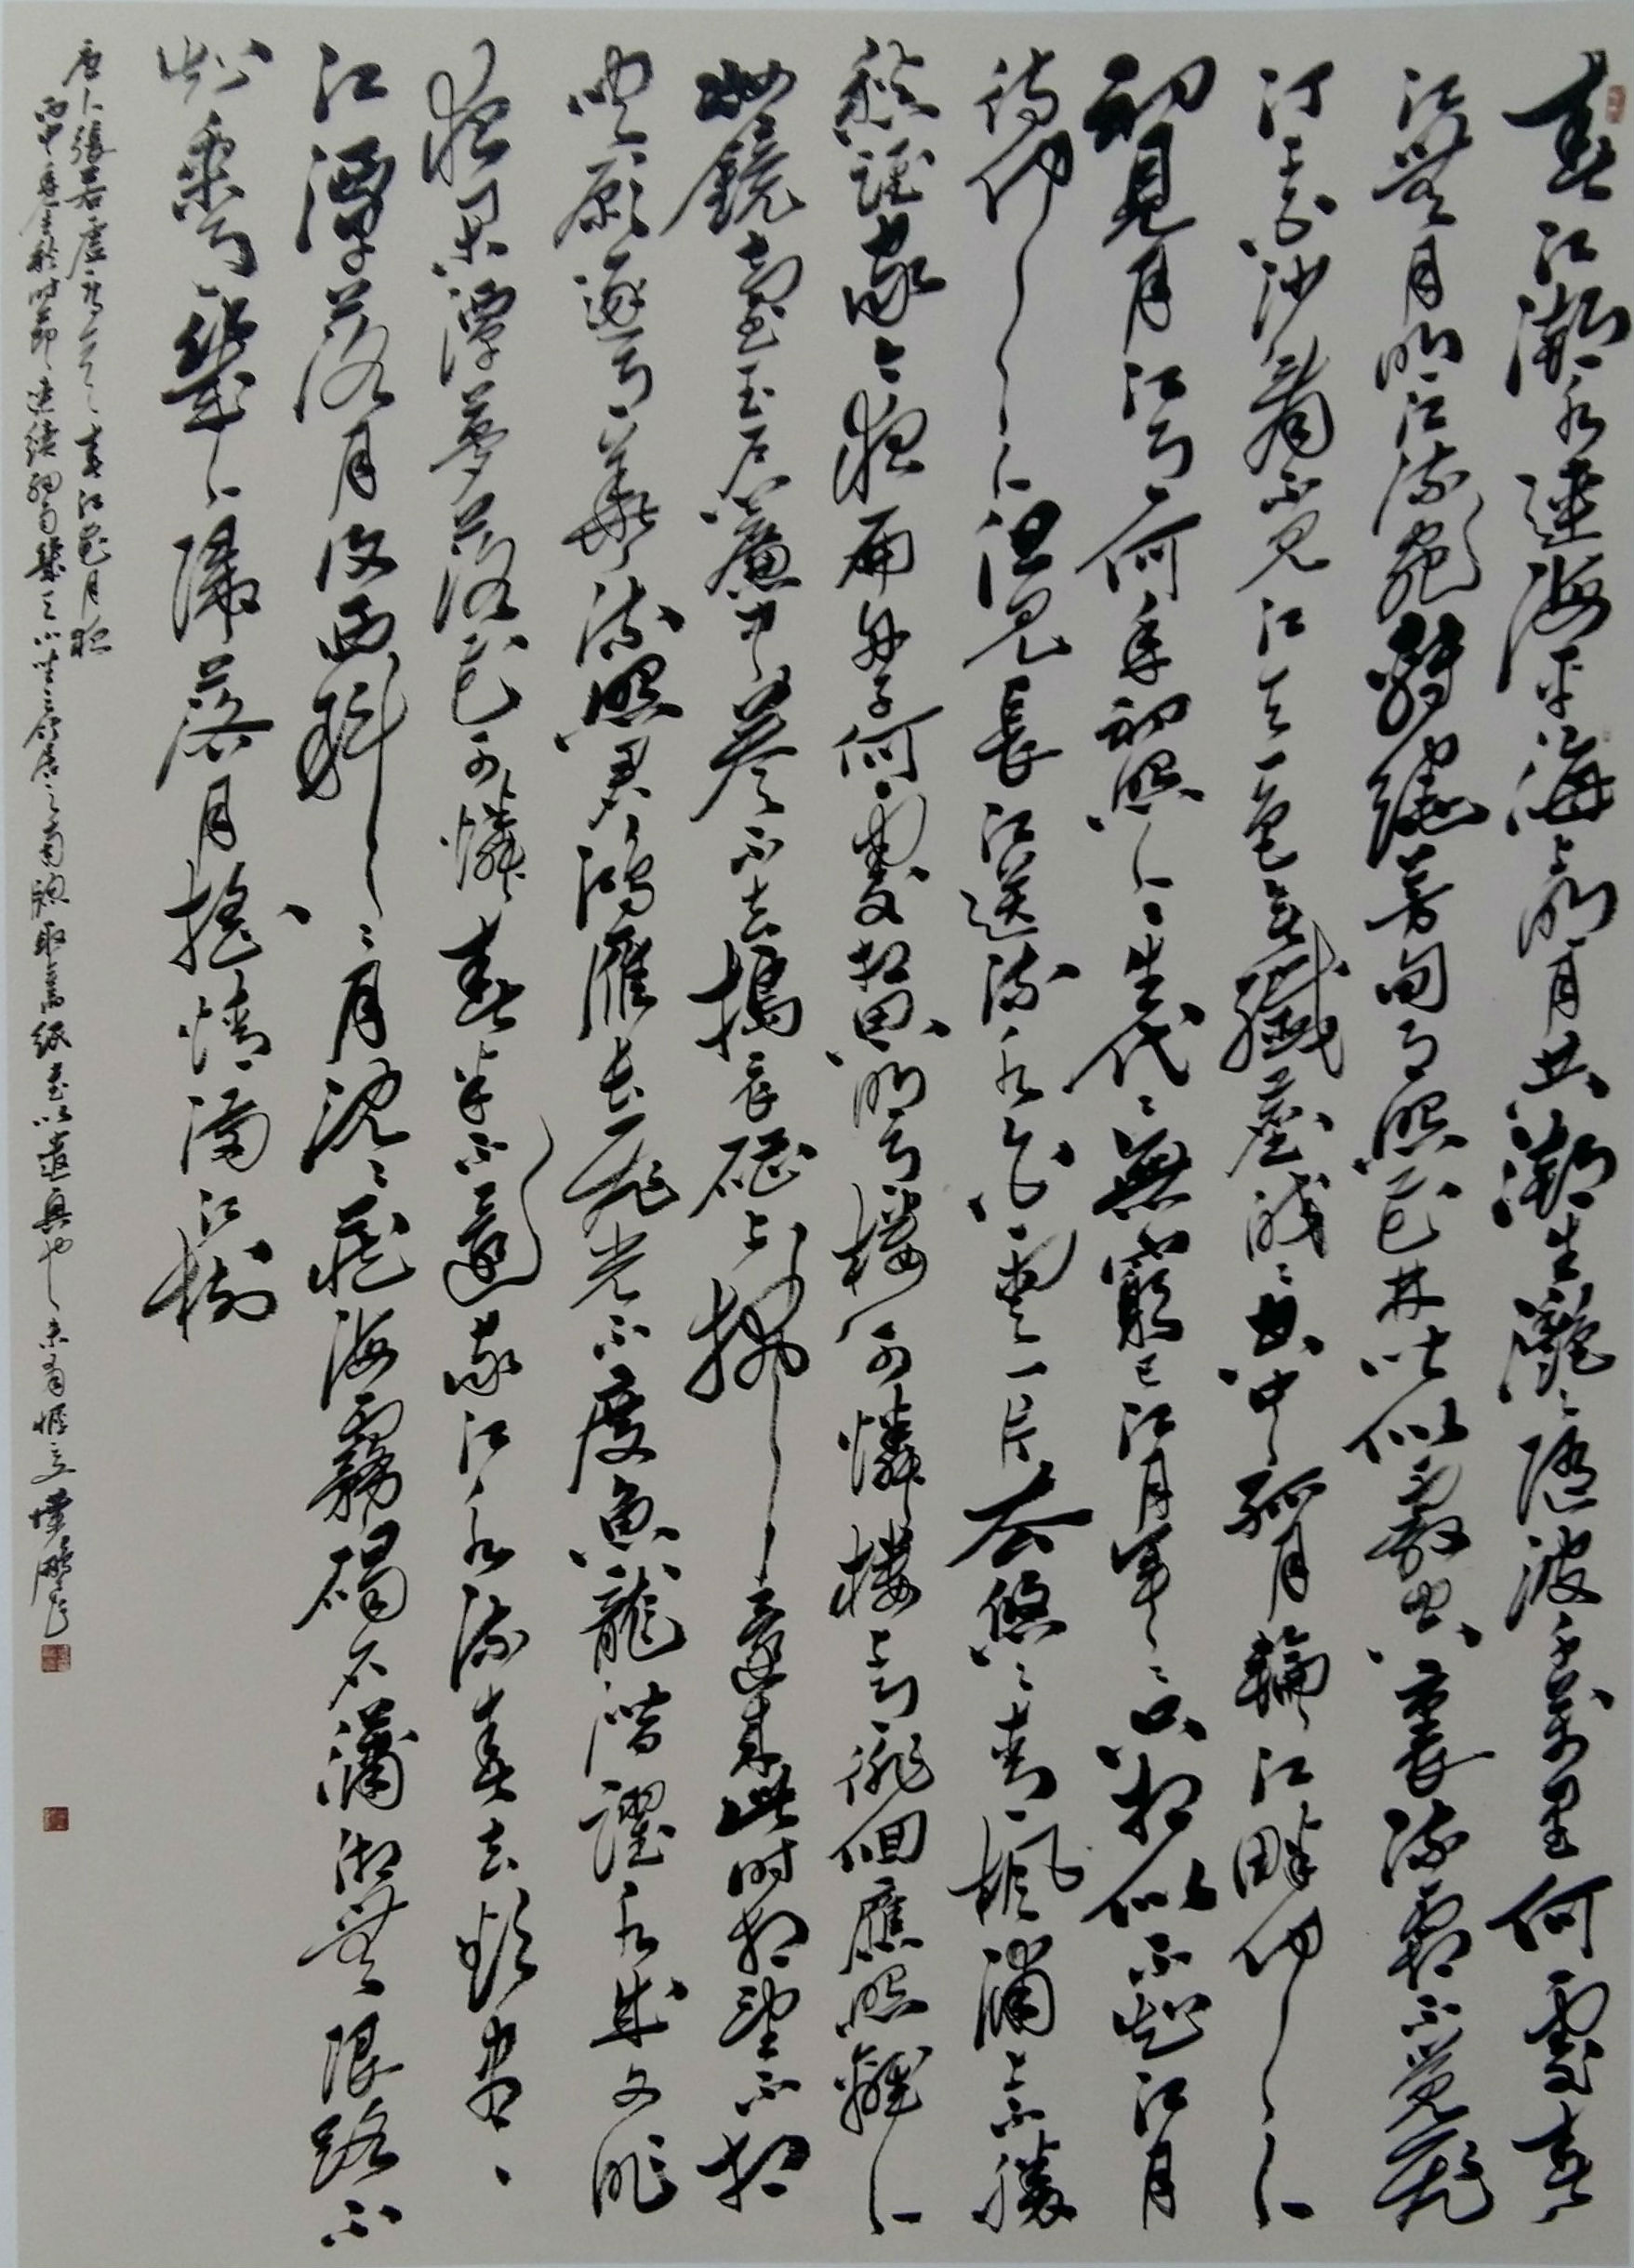 春江潮水連海平海上明月共潮生灩灩隨波千萬里何處春
江無月明江流宛轉繞芳甸月照花林皆似霰空裏流霜不覺飛
汀上白沙看不見江天一色無纖塵皎皎空中孤月輪江畔何人
初見月江月何年初照人人生代代無窮已江月年年只相似不知江月
待何人但見長江送流水白雲一片去悠悠青楓浦上不勝
愁誰家今夜扁舟子何處相思明月樓可憐樓上月徘徊應照離人
妝鏡臺玉戶簾中卷不去搗衣砧上拂還來此時相望不相
聞願逐月華流照君鴻雁長飛光不度魚龍潛躍水成文昨
夜閑潭夢落花可憐春半不還家江水流春去欲盡
江潭落月復西斜斜月沉沉藏海霧碣石瀟湘無限路不
知乘月幾人歸落月搖情滿江樹
唐人張若虛 春江花月夜
丙申 時節 取舊紙書以遣興也